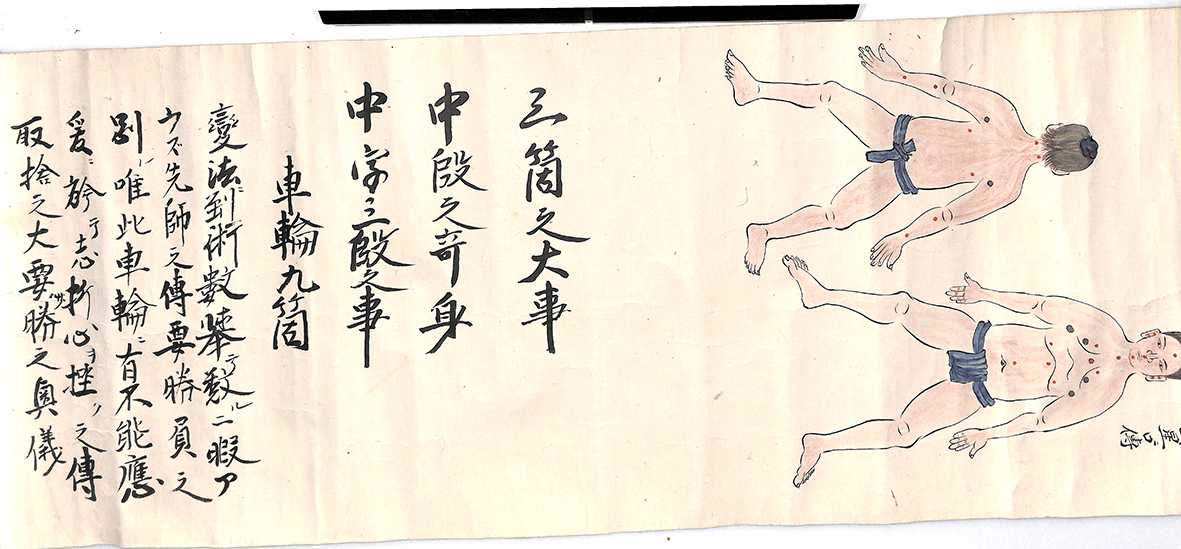 口傳
三箇之大事
中段之奇身
中字三段之事
車輪九箇
變法ニ到術數挙テ数ルニ暇ア
ラズ先師之傳要勝負之
別レ唯此車輪ニ有不能應
爰ニ於テ志折心ヲ挫ノ之傳
取捨之大要勝之奥儀